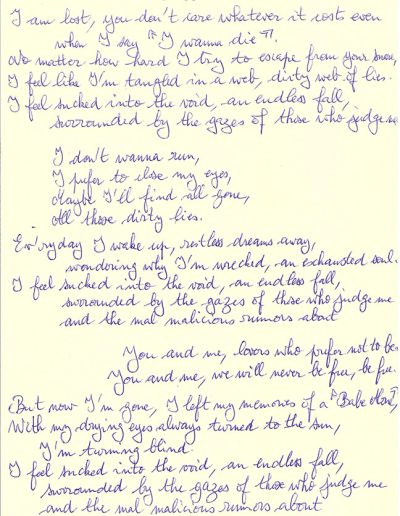 I am lost, you don't care whatever it costs even
when I say "I wanna die"!.
No matter how hard I try to escape from your snow,
I feel like I'm tangled in a web, dirty web of lies.
I feel sucked into the void, an endless fall,
surrounded by the gazes of those who judge me
I don't wanna run,
I prefer to close my eyes,
Maybe I'll find all gone,
All those dirty lies.
Ev'ryday I wake up, restless dreams away,
wondering why I'm wrecked, an exhausted soul.
I feel sucked into the void, an endless fall,
surrounded by the gazes of those who judge me
and the mal malicious rumors about
You and me, lovers who prefer not to be.
You and me, we will never be free, be free.
But now I'm gone, I left my memories of a "Babe
With my drying eyes always turned to the sun,
I'm turning blind.
I feel sucked into the void, an endless fall,
surrounded by the gazes of those who judge me
and the mal malicious rumors about